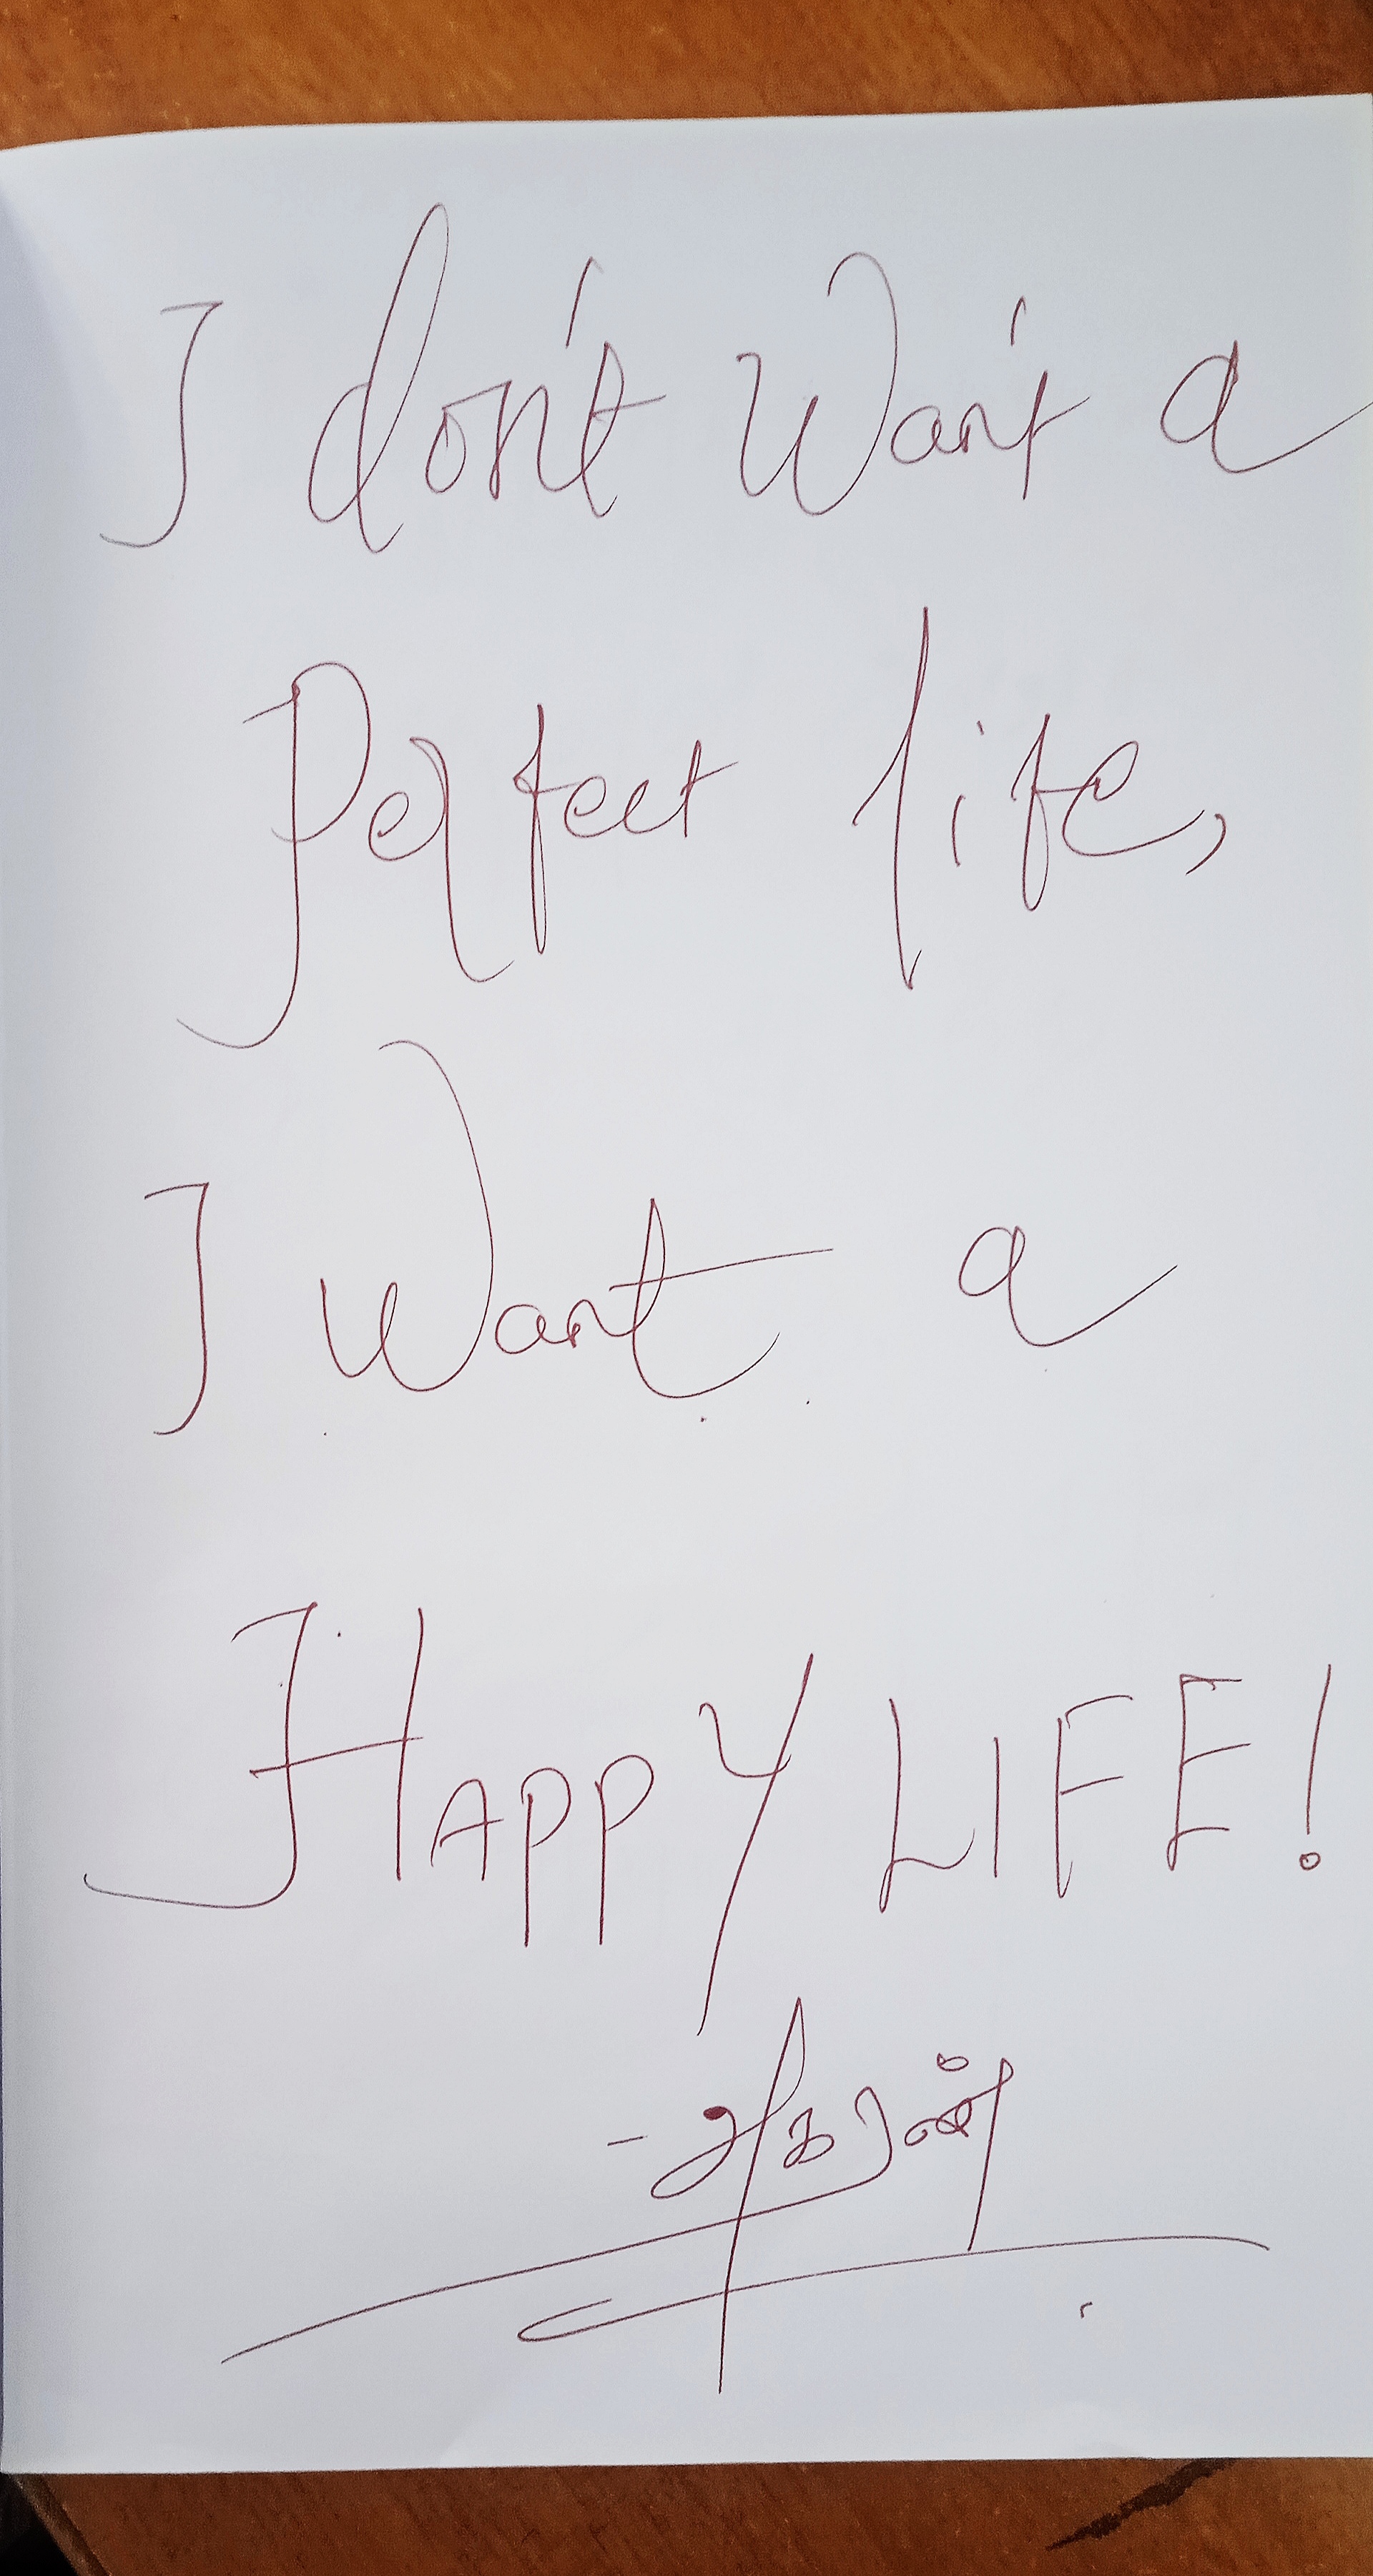 I don't want a
Perfect life,
I want a
HAPPY LIFE!
- அகரன்